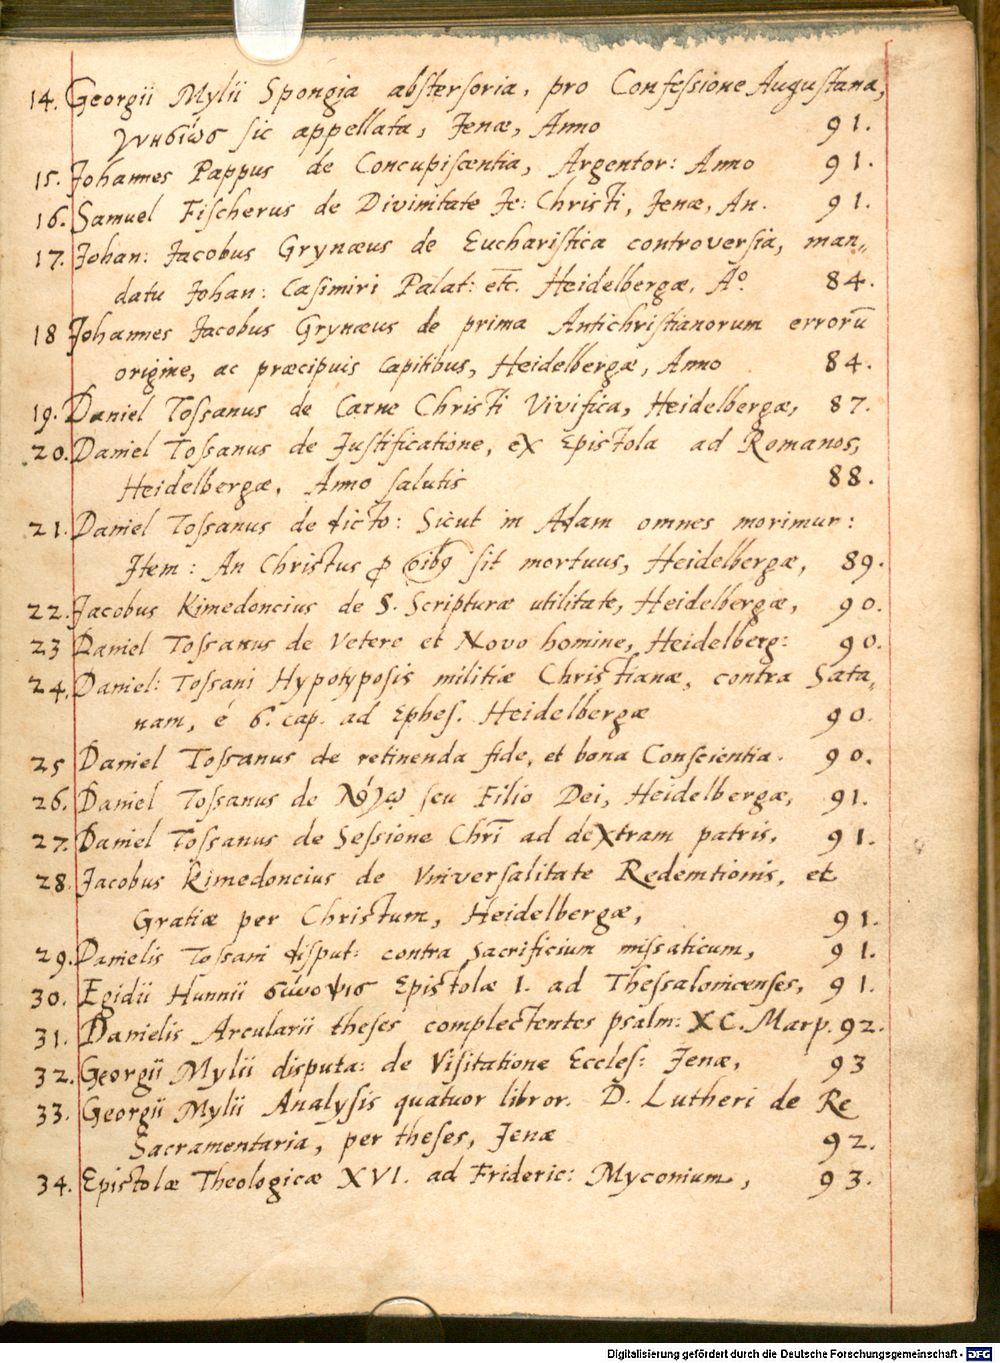 14. Georgii Mylii Spongia abstersoria, pro Confessione Augustana,
γνησίως sic appellata, Jenæ, Anno 91.
15. Johannes Pappus de Concupiscentia, Argentor: Anno 91.
16. Samuel Fischerus de Divinitate Je: Christi, Jenæ, An. 91.
17. Johan: Jacobus Grynæus de Eucharistica controversia, man„
datu Johan: Casimiri Palat: etc. Heidelbergæ, Aº. 84.
18 Johannes Jacobus Grynæus de prima Antichristianorum errorū
origine, ac præcipuis capitibus, Heidelbergæ, Anno 84.
19. Daniel Tossanus de Carne Christi Vivifica, Heidelbergæ, 87.
20. Daniel Tossanus de Justificatione, ex Epistola ad Romanos,
Heidelbergæ, Anno salutis 88.
21. Daniel Tossanus de dicto: Sicut in Adam omnes morimur:
Item: An Christus ꝓ oibꝰ sit mortuus, Heidelbergæ, 89.
22. Jacobus Kimedoncius de S. Scripturæ utilitate, Heidelbergæ, 90.
23 Daniel Tossanus de Vetere et Novo homine, Heidelberg: 90.
24. Daniel: Tossani Hypotyposis militiæ Christianæ, contra Sata„
nam, é 6. cap. ad Ephes. Heidelbergæ 90.
25 Daniel Tossanus de retinenda fide, et bona Conscientia. 90.
26. Daniel Tossanus de λόγῳ seu Filio Dei, Heidelbergæ, 91.
27. Daniel Tossanus de Sessione Chrī ad dextram patris, 91.
28. Jacobus Kimedoncius de Vniversalitate Redemtionis, et
Gratiæ per Christum, Heidelbergæ, 91.
29. Danielis Tossani disput: contra Sacrificium missaticum, 91.
30. Egidii Hunnii σύνοψισ Epistolæ 1. ad Thessalonicenses, 91.
31. Danielis Arcularii theses complectentes psalm: XC. Marp. 92.
32. Georgii Mylii disputa: de Visitatione Eccles: Jenæ, 93
33. Georgii Mylii Analysis quatuor libror. D. Lutheri de Re
Sacramentaria, per theses, Jenæ 92.
34. Epistolæ Theologicæ XVI. ad Frideric: Myconium, 93.
Digitalisierung gefördert durch die Deutsche Forschungsgemeinschaft - DFG